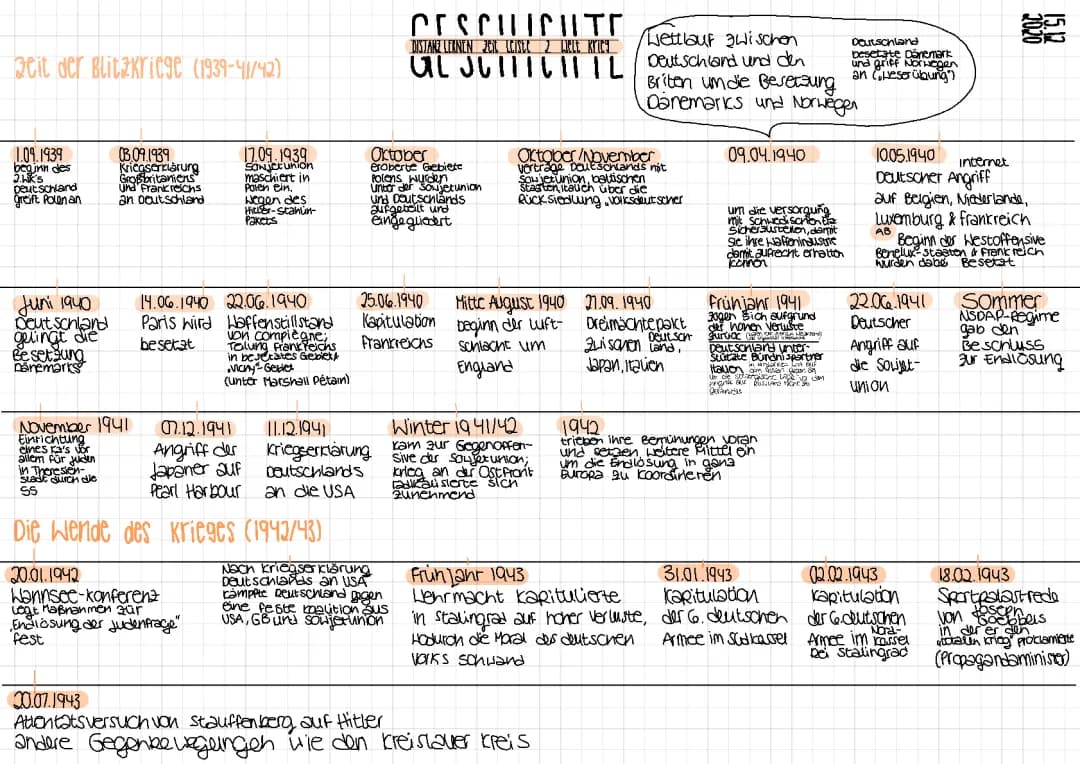 GESCHICHTE
DISTANZ LERNEN ZEIT LEISTE 2 WELT KRIEG
15.12
2020
Zeit der Blitzkriege (1939-41/42)
Wettlauf zwischen
Deutschland und den
Briten um die Besetzung
Dänemarks und Norwegen
Deutschland
besetzte Dänemark
und griff Norwegen
an („Weserübung")
1.09.1939
beginn des
2.WK's
Deutschland
greift Polen an
03.09.1939
Kriegserklärung
Großbritaniens
und Frankreichs
an Deutschland
17.09.1939
Sowjetunion
maschiert in
Polen ein.
wegen des
Hitler-Stalin-
Pakets
Oktober
eroberte Gebiete
Polens wurden
unter der Sowjetunion
und Deutschlands
aufgeteilt und
eingegliedert
Oktober/November
Verträge Deutschlands mit
Sowjetunion, baltischen
Staaten, Italien über die
Rücksiedlung „Volksdeutscher
09.04.1940
um die Versorgung
mit schwedischen Erz
sicherzustellen, damit
sie ihre Waffenindustrie
damit aufrecht erhalten
können
10.05.1940
Internet
Deutscher Angriff
auf Belgien, Niederlande,
Luxemburg & Frankreich
AB
Beginn der Westoffensive
Benelux-Staaten & Frankreich
wurden dabei Besetzt
Juni 1940
Deutschland
gelingt die
Besetzung
Dänemarks
14.06.1940
Paris wird
besetzt
22.06.1940
Waffenstillstand
von Compiègne,
Teilung Frankreichs
in besetztes Gebiet &
„Vichy"-Gebiet
(unter Marshall Pétain)
25.06.1940
Kapitulation
Frankreichs
Mitte August 1940
beginn der Luft-
schlacht um
England
27.09.1940
Dreimächtepakt
zwischen Deutsch-
land,
Japan, Italien
Frühjahr 1941
zogen sich aufgrund
der hohen Verluste
zurück
Deutschland unter-
stützte Bündnispartner
Italien
22.06.1941
Deutscher
Angriff auf
die Sowjet-
union
Sommer
NSDAP-Regime
gab den
Beschluss
zur Endlösung
November 1941
Einrichtung
eines KZ's vor
allem für Juden
in Theresien-
stadt durch die
SS
07.12.1941
Angriff der
Japaner auf
Pearl Harbour
11.12.1941
Kriegserklärung
Deutschlands
an die USA
Winter 1941/42
kam zur Gegenoffen-
sive der Sowjetunion;
Krieg an der Ostfront
radikalisierte sich
zunehmend
1942
trieben ihre Bemühungen voran
und setzen weitere Mittel ein
um die Endlösung in ganz
Europa zu koordinieren
Die Wende des Krieges (1942/43)
20.01.1942
Wannsee-Konferenz
legt Maßnahmen zur
„Endlösung der Judenfrage"
fest
Nach Kriegserklärung
Deutschlands an USA
kämpfte Deutschland gegen
eine feste Koalition aus
USA, GB und Sowjetunion
Frühjahr 1943
Wehrmacht kapitulierte
in Stalingrad auf hoher Verluste,
wodurch die Moral des deutschen
Volks schwand
31.01.1943
Kapitulation
der 6. deutschen
Armee im Südkassel
02.02.1943
Kapitulation
der 6. deutschen
Armee im Nord-
kassel
bei Stalingrad
18.02.1943
Sportpalastrede
von Joseph
Goebbels
in der er den
„totalen Krieg" proclamierte
(Propagandaminister)
20.07.1943
Attentatsversuch von Stauffenberg auf Hitler
andere Gegenbewegungen wie den Kreislauer Kreis